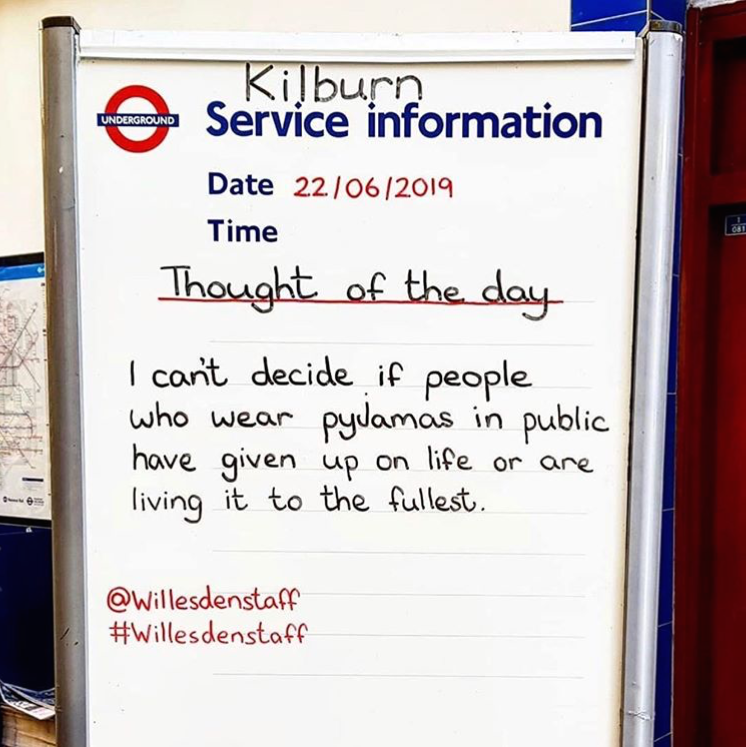 Kilburn
UNDERGROUND
Service information
Date 22/06/2019
Time
Thought of the day
I can't decide if people
who wear pyjamas in public
have given up on life or are
living it to the fullest.
@Willesdenstaff
#Willesdenstaff